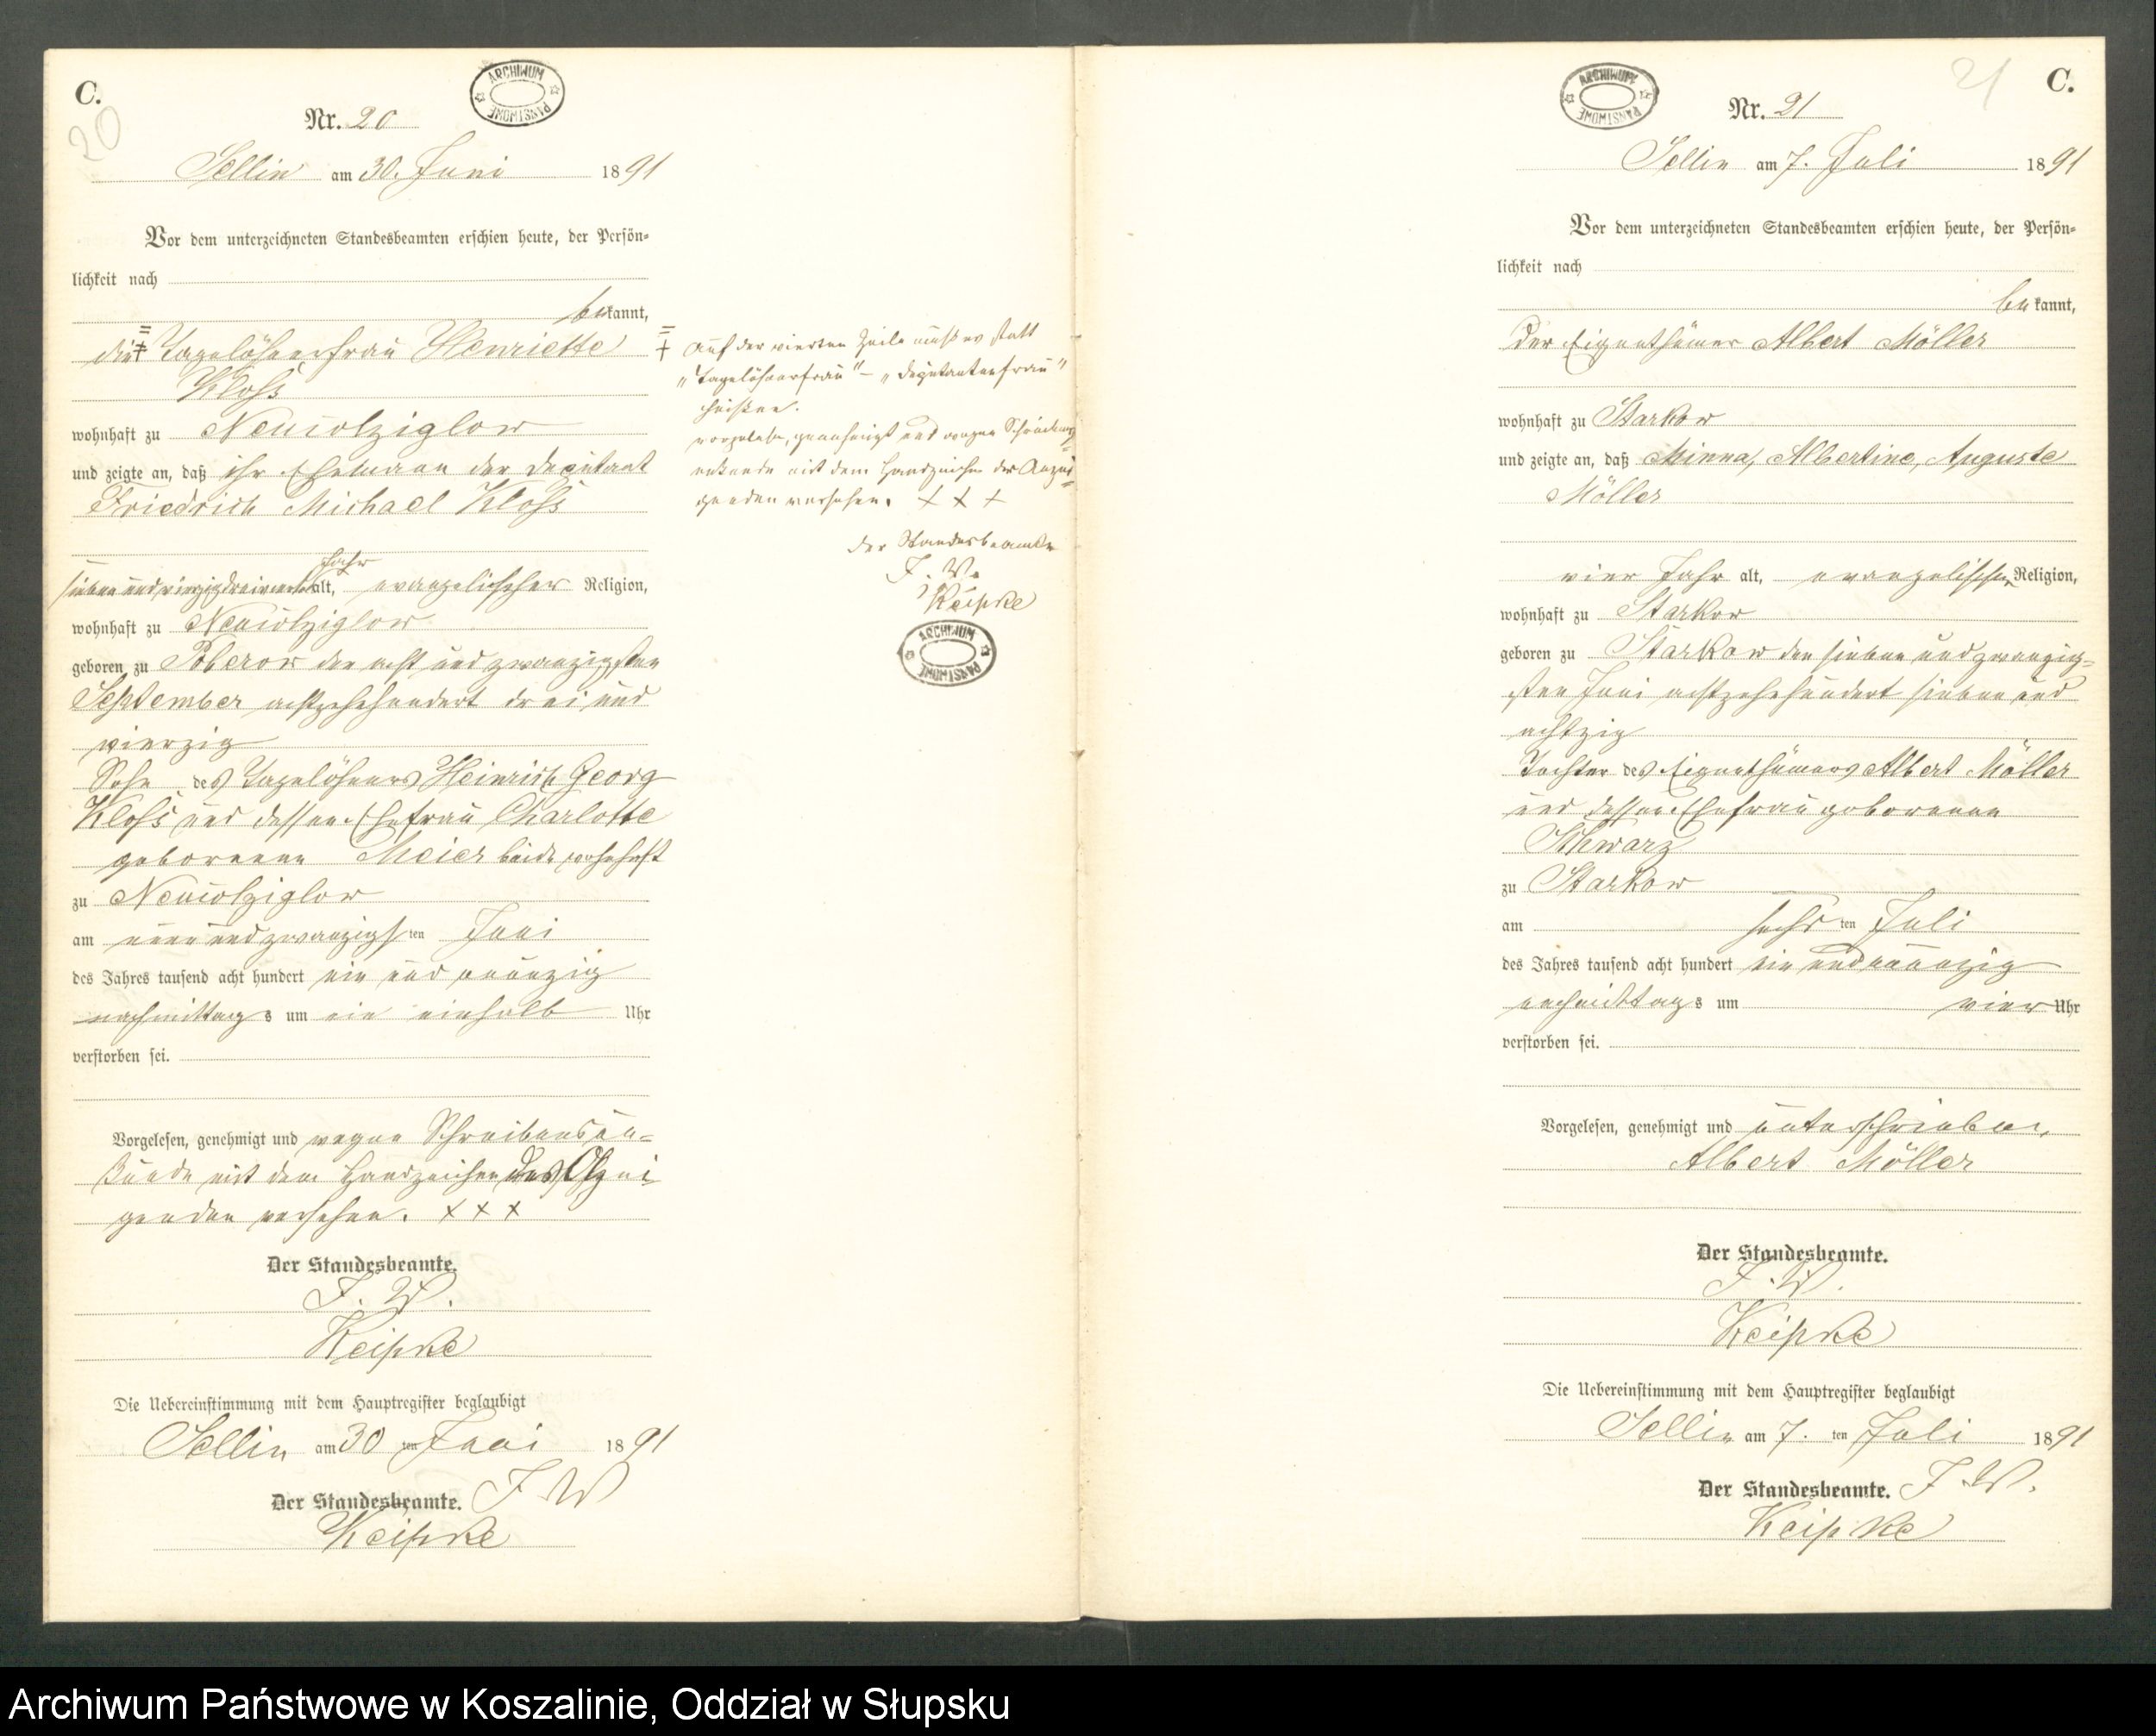 C.
20
ARCHIWUM PAŃSTWOWE
Nr. 20
Sellin am 30. Juni 1891
Vor dem unterzeichneten Standesbeamten erschien heute, der Persön-
lichkeit nach
bekannt,
die Tagelöhnerfrau Henriette
Kloß
wohnhaft zu Neuwolziglow
und zeigte an, daß ihr Ehemann der Deputant
Friedrich Michael Kloß
Jahr
sieben und vierzig dreiviertel alt, evangelischer Religion,
wohnhaft zu Neuwolziglow
geboren zu Poberow den acht und zwanzigsten
September achtzehnhundert drei und
vierzig
Sohn des Tagelöhners Heinrich Georg
Kloß und dessen Ehefrau Charlotte
geborenen Meier beide wohnhaft
zu Neuwolziglow
am neun und zwanzigsten Juni
des Jahres tausend acht hundert ein und neunzig
nachmittags um ein einhalb Uhr
verstorben sei.
Vorgelesen, genehmigt und wegen Schreibensun-
kunde mit dem Handzeichen des Anzei-
genden versehen. + + +
Der Standesbeamte.
J. V.
Keipke
Die Uebereinstimmung mit dem Hauptregister beglaubigt
Sellin am 30 ten Juni 1891
Der Standesbeamte. J. V.
Keipke
Auf der vierten Zeile muß es statt
"Tagelöhnerfrau" – "Deputantenfrau"
heißen.
vorgelesen, genehmigt und wegen Schreibens
unkunde mit dem Handzeichen der Anzei-
genden versehen. + + +
Der Standesbeamte
J. V.
Keipke
ARCHIWUM PAŃSTWOWE
21
C.
ARCHIWUM PAŃSTWOWE
Nr. 21
Sellin am 7. Juli 1891
Vor dem unterzeichneten Standesbeamten erschien heute, der Persön-
lichkeit nach
bekannt,
Der Eigenthümer Albert Möller
wohnhaft zu Starkow
und zeigte an, daß Minna, Albertine, Auguste
Möller
vier Jahr alt, evangelischer Religion,
wohnhaft zu Starkow
geboren zu Starkow den sieben und zwanzig-
sten Juni achtzehnhundert sieben und
achtzig
Tochter des Eigenthümers Albert Möller
und dessen Ehefrau geborenen
Schwarz
zu Starkow
am sechsten Juli
des Jahres tausend acht hundert ein und neunzig
nachmittags um vier Uhr
verstorben sei.
Vorgelesen, genehmigt und unterschrieben,
Albert Möller
Der Standesbeamte.
J. V.
Keipke
Die Uebereinstimmung mit dem Hauptregister beglaubigt
Sellin am 7. ten Juli 1891
Der Standesbeamte. J. V.
Keipke
Archiwum Państwowe w Koszalinie, Oddział w Słupsku